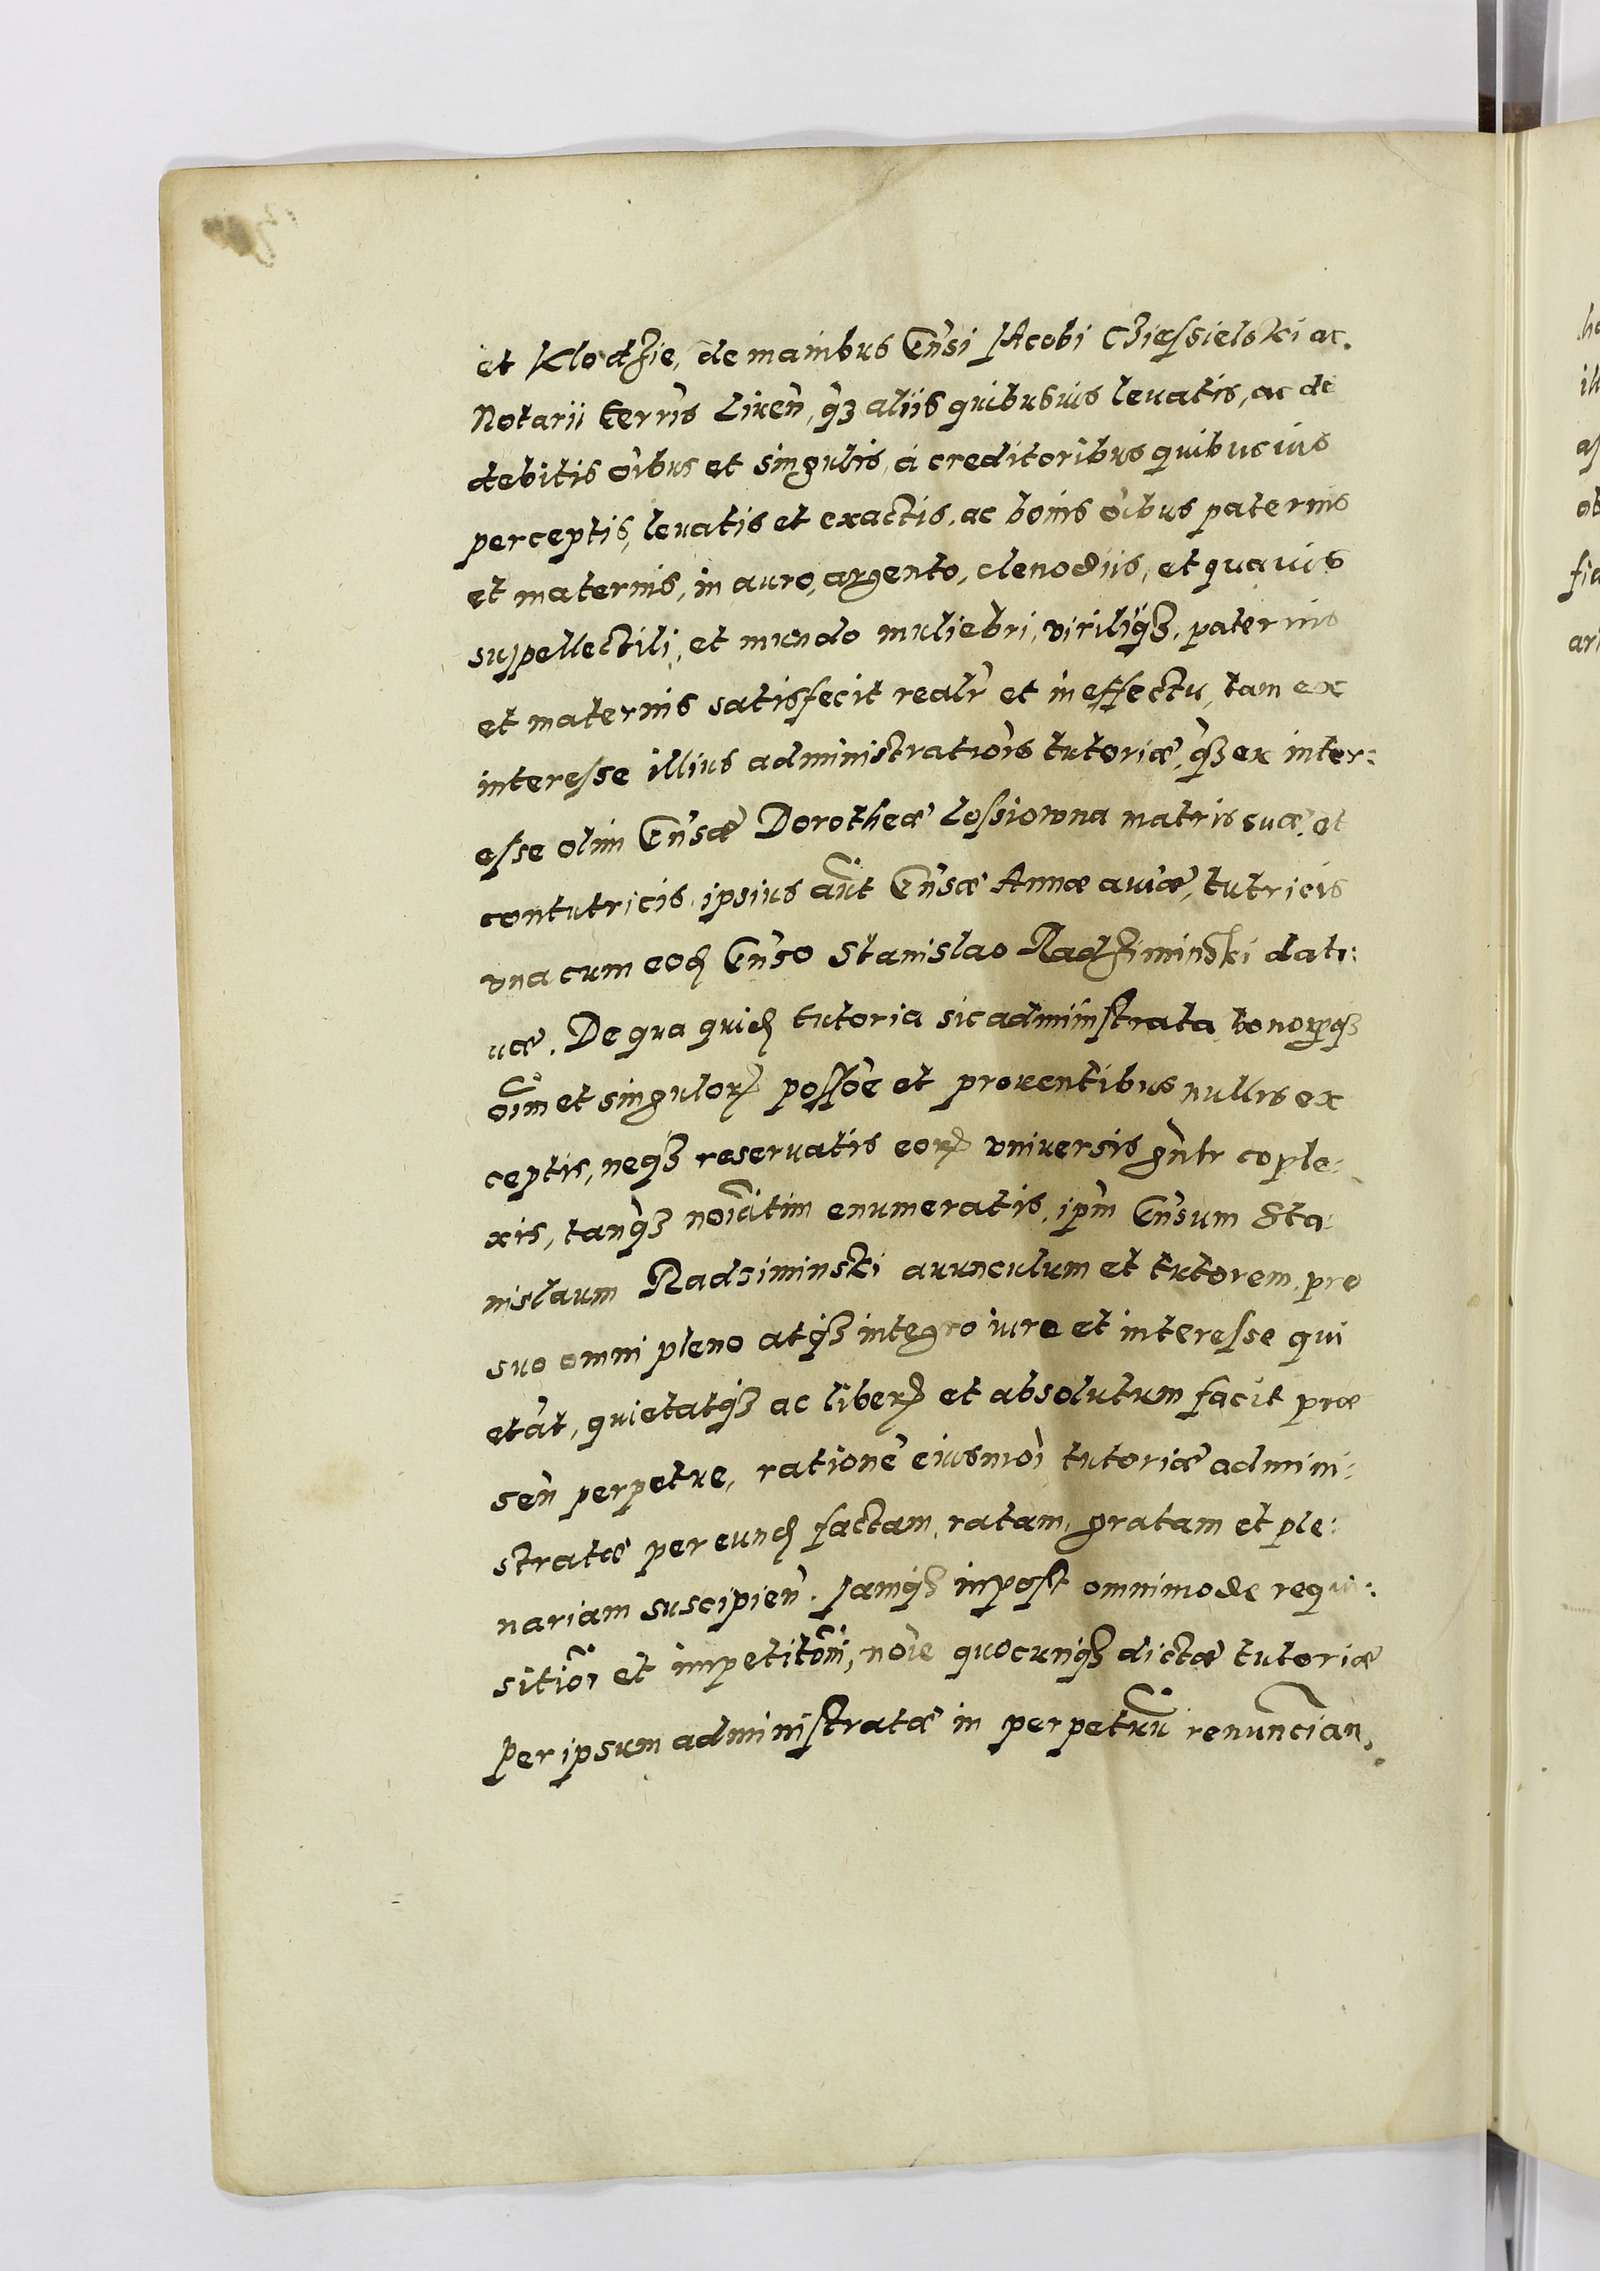 et Klodzie, de mainbus Gn̄si Jacobi Cieſsielski ac.
Notarii terr̄is Liuen̄, q̄ʒ aliis quibusuis leuatis, ac de
debitis oībus et singulis, à creditoribus quibusuis
perceptis, leuatis et exactis, ac boīns oībus paternis
et maternis, in auro, argento, clenodiis, et quauis
suppellectili, et mundo muliebri, viriliqʒ, paternis
et maternis satisfecit realr̄ et in effectu, tam ex
intereſse illius administratiōis tutoriæ, q̄ʒ ex inter:
eſse olim Gn̄sæ Dorotheæ Loſsiowna matris suæ, et
contutricis, ipsius aūt Gn̄sæ Annæ auiæ, tutricis
vna cum eoḍ Gn̄so Stanislao Radziminski dati:
uæ. De qua quiḍ tutoria sic adminiſtrata, bonorꝝqʒ
oīm et singulorꝝ poſſoē et prouentibus nullis ex
ceptis, neqʒ reseruatis eorꝝ vniuersis gn̄lr cople:
xis, tanq̄ʒ noīatim enumeratis, ipm̄ Gn̄sum Sta:
nislaum Radziminski auunculum et tutorem, pro
suo omni pleno atqʒ integro iure et intereſse qui
etāt, quietatqʒ ac liberꝝ et absolutum facit præ
sēn perpetue, rationē eiusmoī tutoriæ admini:
stratæ per eunḍ factam, ratam, gratam et ple:
nariam suscipien̄. Jamqʒ inpoſt omnimode requi:
sitiōi et impetitōni, noīe quocunqʒ dictæ tutoriæ
per ipsum adminiſtratæ in perpetuū renuncian̄.